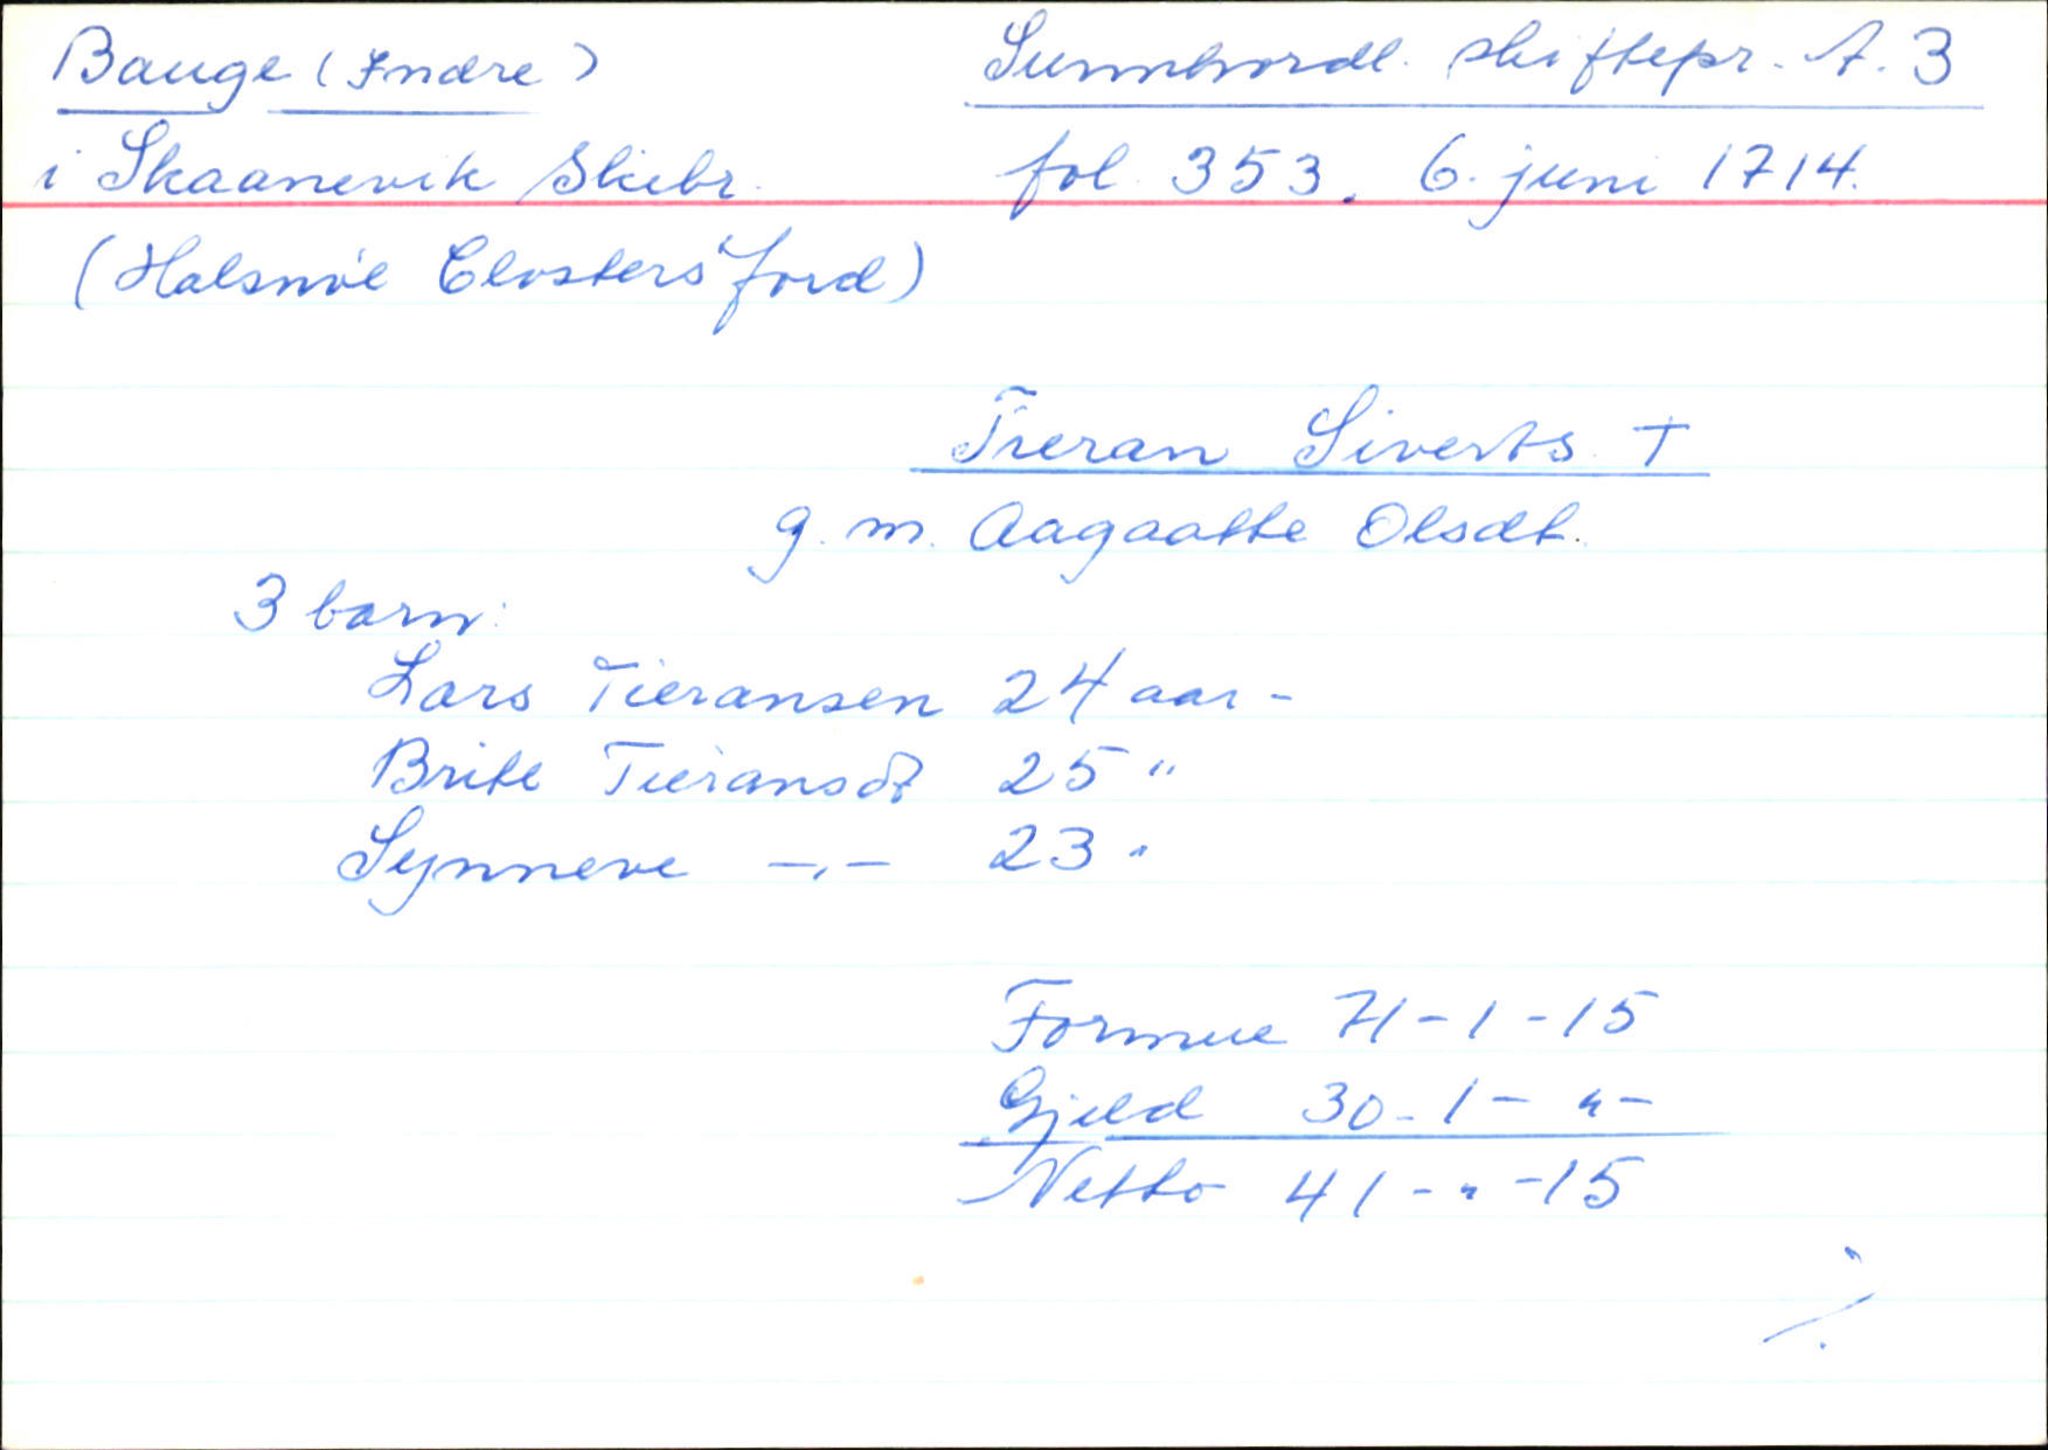 Bauge (Indre)
Sunnhordl. skiftepr. A. 3
i Skaanevik Skibr.
fol. 353. 6. juni 1714.
(Halsnöe Closters Jord)
Tieran Siverts. †
g. m. Aagaatte Olsdt.
3 barn:
Lars Tieransen 24 aar -
Brite Tieransdt 25 "
Synneve -,- 23 "
Formue 71 - 1 - 15
Gjeld 30 - 1 - " -
Netto 41 - " - 15
./.